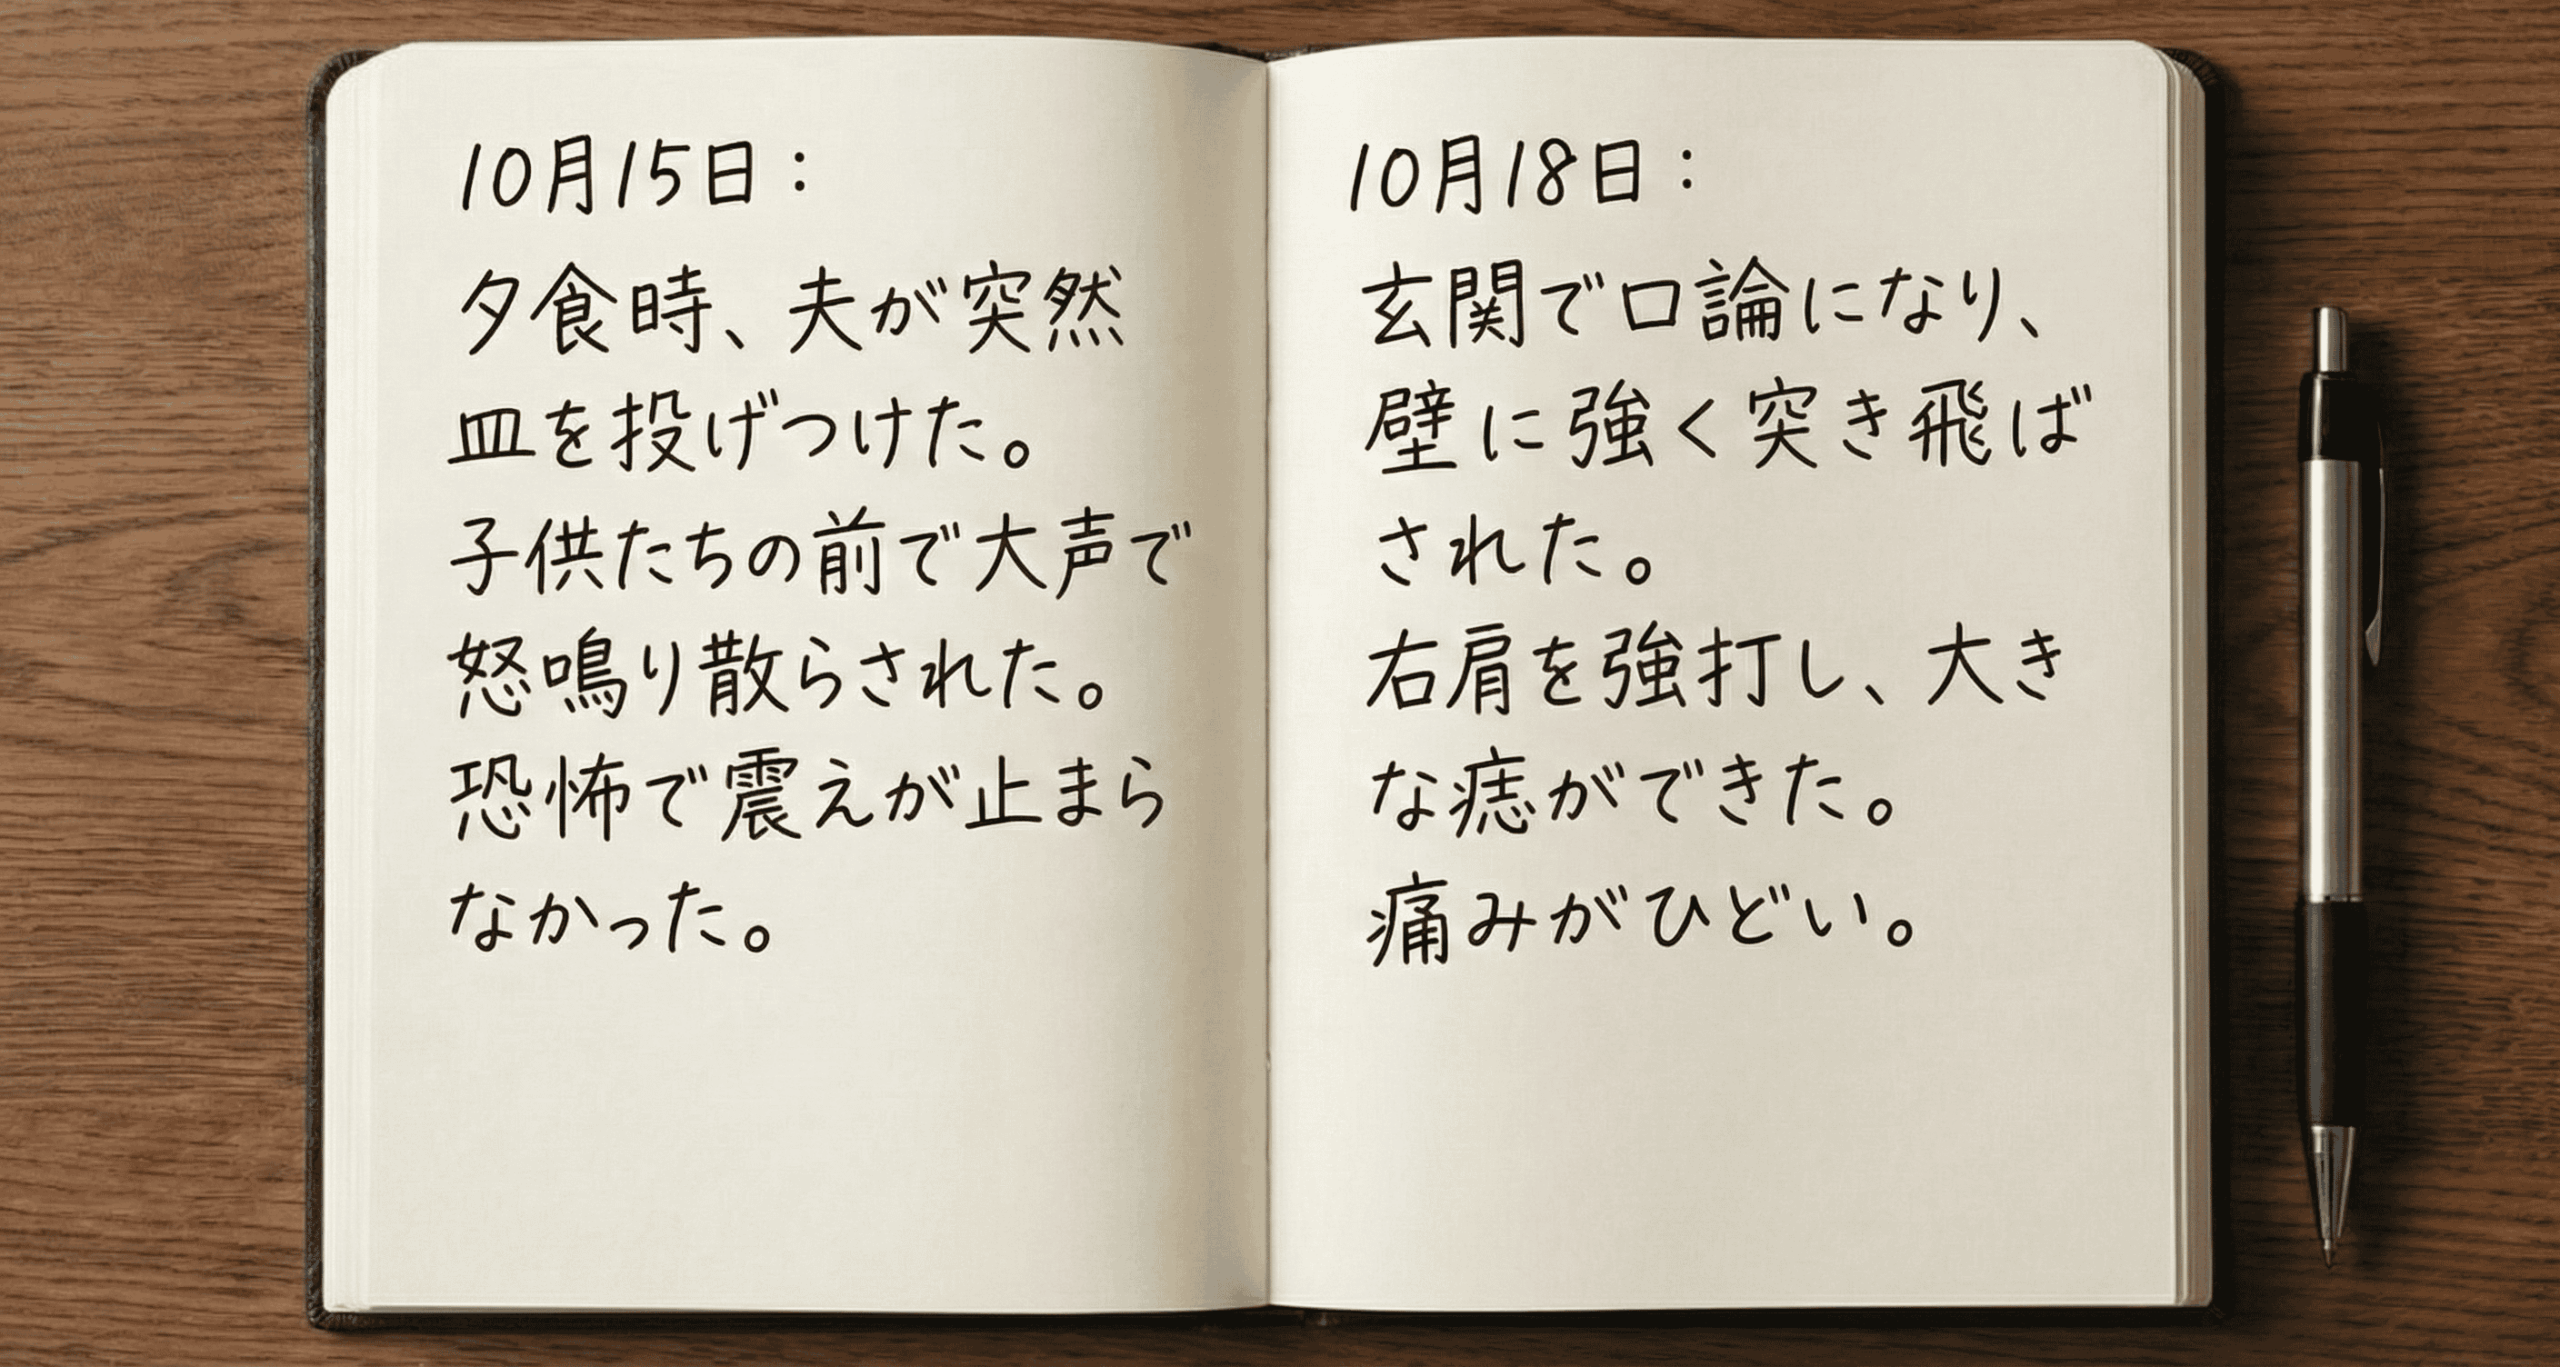 10月15日：
夕食時、夫が突然
皿を投げつけた。
子供たちの前で大声で
怒鳴り散らされた。
恐怖で震えが止まら
なかった。
10月18日：
玄関で口論になり、
壁に強く突き飛ば
された。
右肩を強打し、大き
な痣ができた。
痛みがひどい。